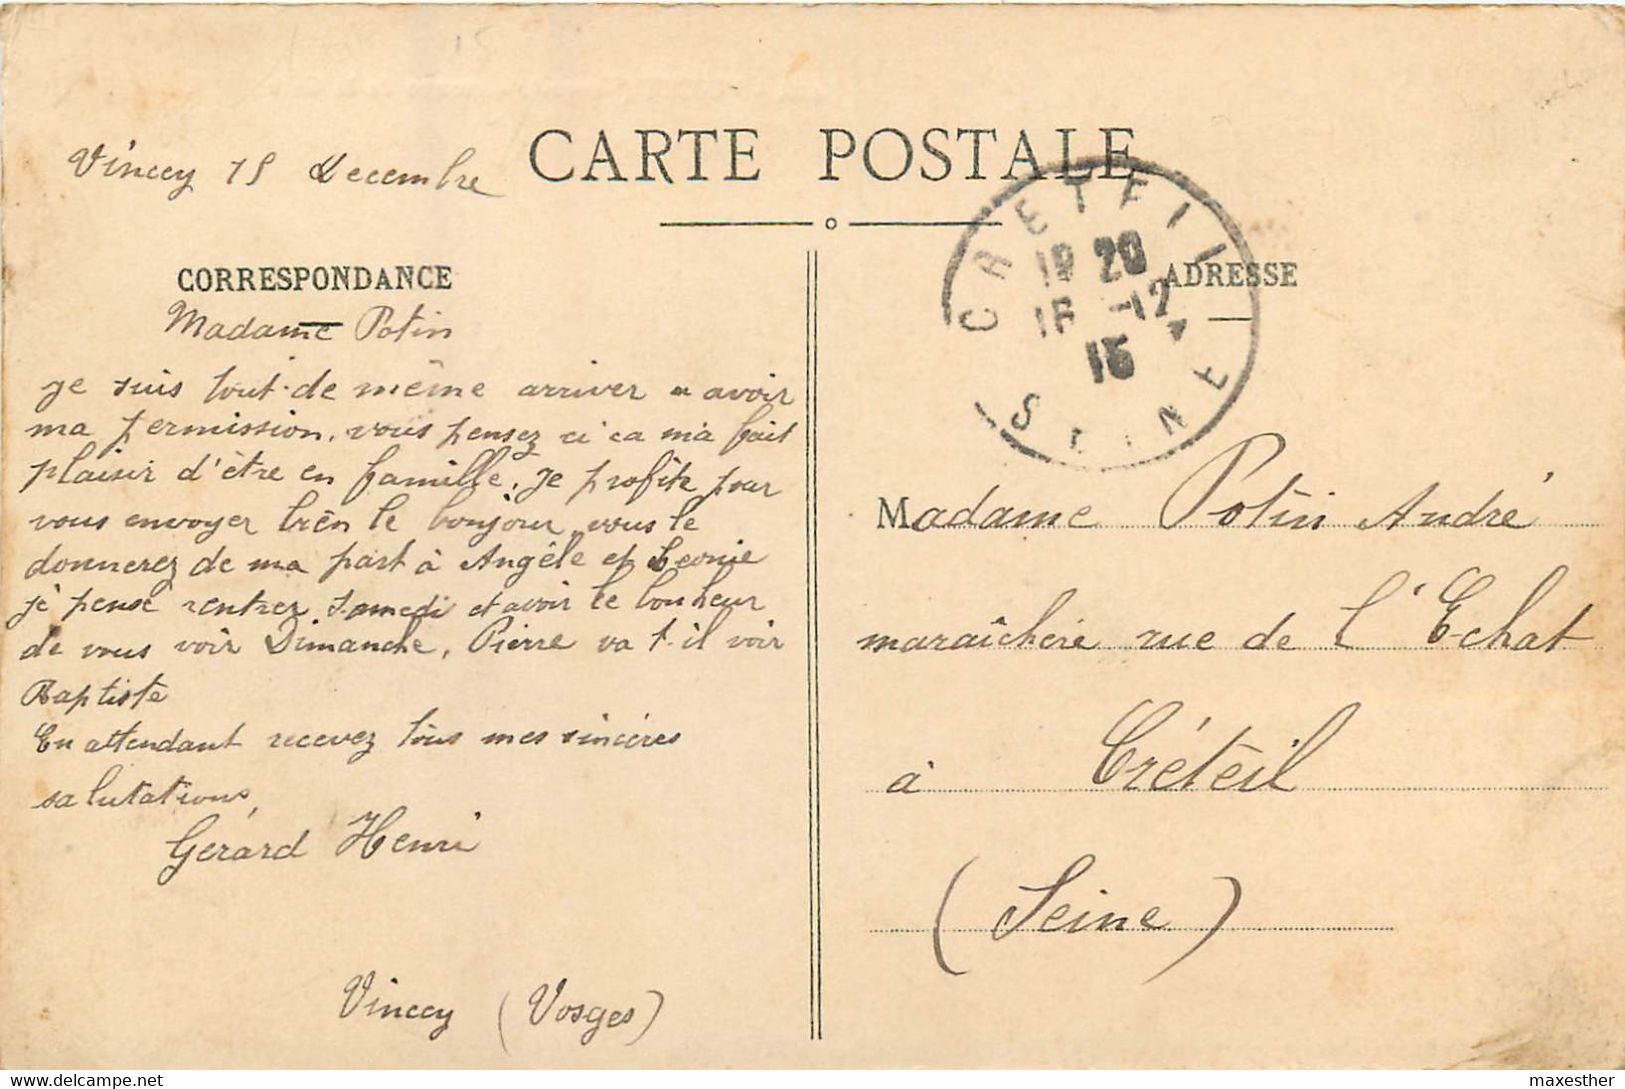 CARTE POSTALE
Vincey 15 Decembre
CORRESPONDANCE
Madame Potin
je suis tout de même arriver a avoir
ma permission, vous pensez ci ca m'a fait
plaisir d'être en famille, je profite pour
vous envoyer bien le bonjour, vous le
donnerez de ma part à Angèle et Leonie
je pense rentrer Samedi et avoir le bonheur
de vous voir Dimanche, Pierre va t-il voir
Baptiste
En attendant recevez tous mes sincères
salutations,
Gérard Henri
Vincey (Vosges)
CRETEIL
19 20
16 -12
15
SEINE
ADRESSE
Madame Potin André
maraîchère rue de l'Echat
à Créteil
(Seine)
Delcampe.net
maxesther